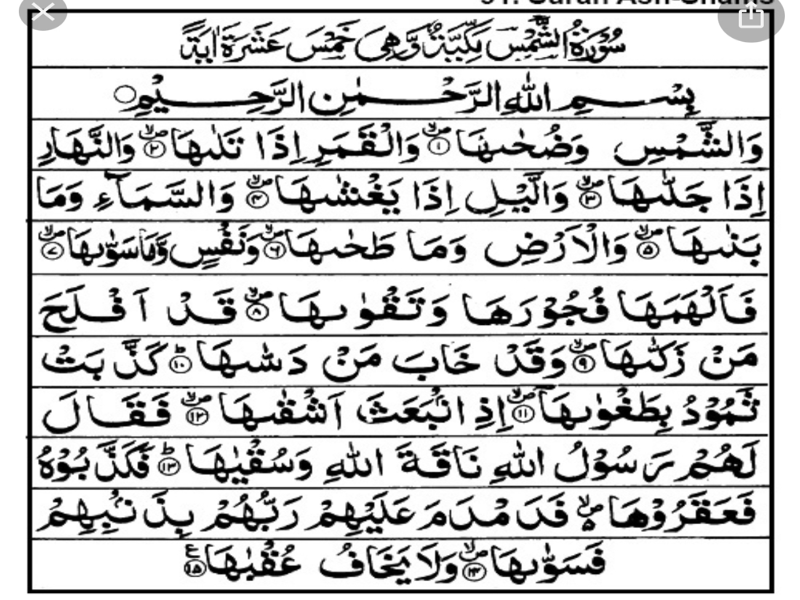 سُوْرَةُ الشَّمْسِ مَكِّيَّةٌ وَّهِىَ خَمْسَ عَشَرَةَ اٰيَةً
بِسْمِ اللهِ الرَّحْمٰنِ الرَّحِيْمِ ○
وَالشَّمْسِ وَضُحٰىهَا ۙ﴿۱﴾ وَالْقَمَرِ اِذَا تَلٰىهَا ۙ﴿۲﴾ وَالنَّهَارِ
اِذَا جَلّٰىهَا ۙ﴿۳﴾ وَالَّيْلِ اِذَا يَغْشٰىهَا ۙ﴿۴﴾ وَالسَّمَآءِ وَمَا
بَنٰىهَا ۙ﴿۵﴾ وَالْاَرْضِ وَمَا طَحٰىهَا ۙ﴿۶﴾ وَنَفْسٍ وَّمَا سَوّٰىهَا ۙ﴿۷﴾
فَاَلْهَمَهَا فُجُوْرَهَا وَتَقْوٰىهَا ۙ﴿۸﴾ قَدْ اَفْلَحَ
مَنْ زَكّٰىهَا ۙ﴿۹﴾ وَقَدْ خَابَ مَنْ دَسّٰىهَا ؕ﴿۱۰﴾ كَذَّبَتْ
ثَمُوْدُ بِطَغْوٰىهَاۤ ۙ﴿۱۱﴾ اِذِ انْۢبَعَثَ اَشْقٰىهَا ۙ﴿۱۲﴾ فَقَالَ
لَهُمْ رَسُوْلُ اللهِ نَاقَةَ اللهِ وَسُقْيٰهَا ؕ﴿۱۳﴾ فَكَذَّبُوْهُ
فَعَقَرُوْهَا ۙ۬ فَدَمْدَمَ عَلَيْهِمْ رَبُّهُمْ بِذَنْۢبِهِمْ
فَسَوّٰىهَا ۙ﴿۱۴﴾ وَلَا يَخَافُ عُقْبٰهَا ﴿۱۵﴾